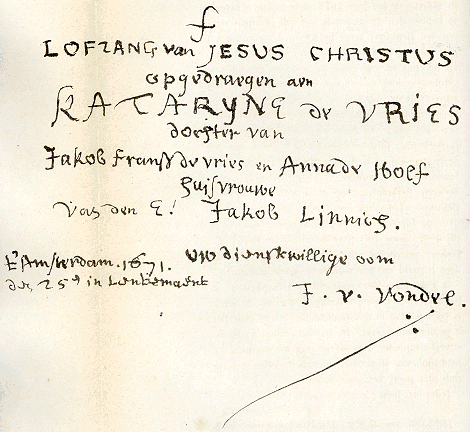 LOFZANG van JESUS CHRISTUS
opgedraegen aen
KATARYNE de VRIES
dochter van
Jakob Fransz de vries en Anna de Wolf
huisvrouwe
van den E. Jakob Linnich.
t'Amsterdam. 1671. uw dienstwillige oom
den 25n in Lentemaent
J. v. Vondel.